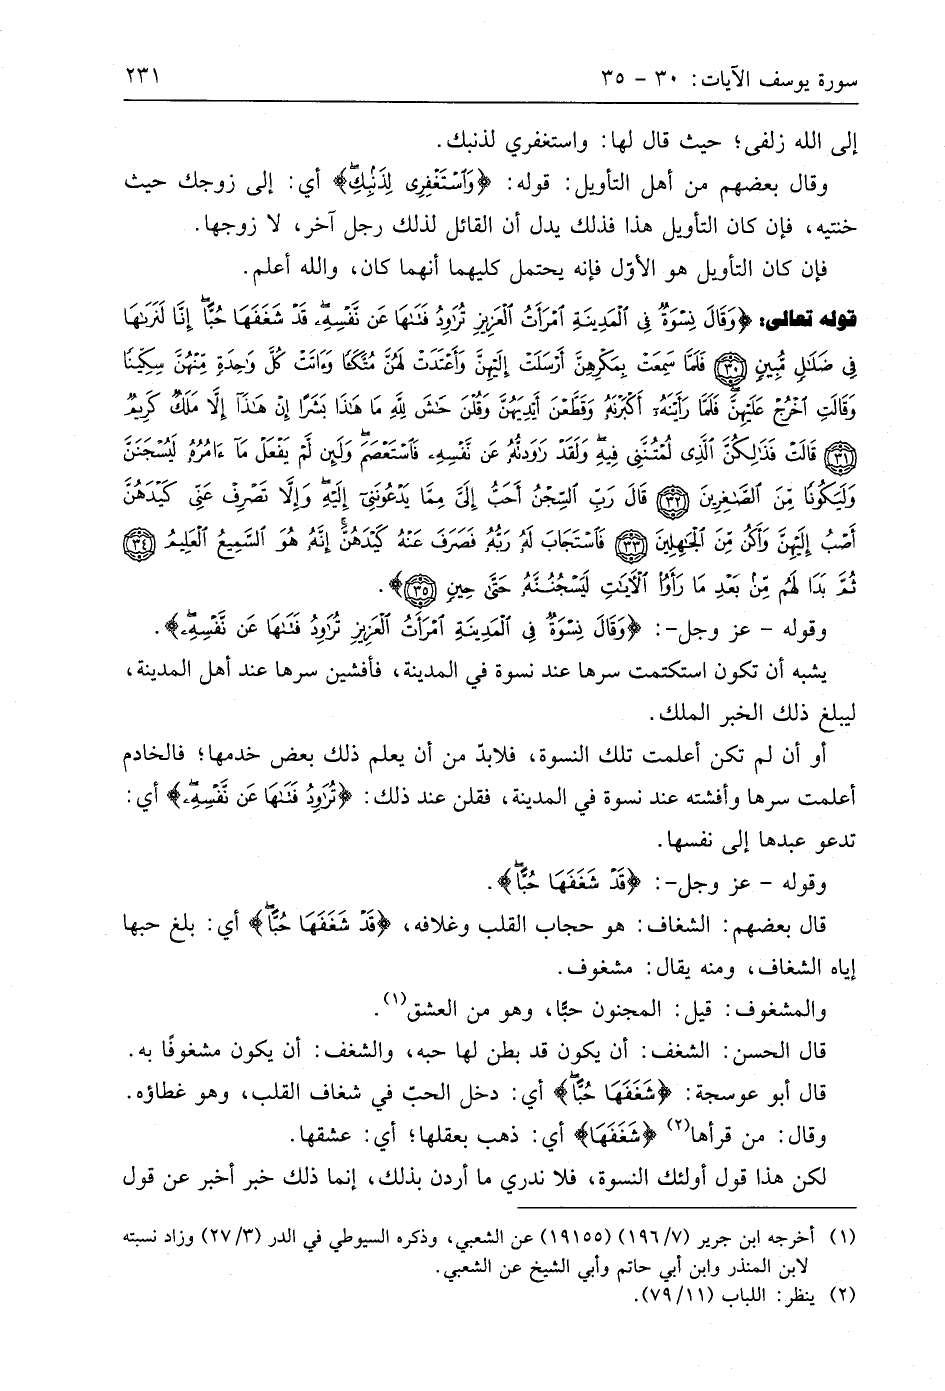 سورة يوسف الآيات: ٣٠ - ٣٥
٢٣١
إلى الله زلفى؛ حيث قال لها: واستغفري لذنبك.
وقال بعضهم من أهل التأويل: قوله: ﴿وَٱسۡتَغۡفِرِي لِذَنۢبِكِۖ﴾ أي: إلى زوجك حيث
خنتيه، فإن كان التأويل هذا فذلك يدل أن القائل لذلك رجل آخر، لا زوجها.
فإن كان التأويل هو الأوّل فإنه يحتمل كليهما أنهما كان، والله أعلم.
قوله تعالى: ﴿وَقَالَ نِسۡوَةٞ فِي ٱلۡمَدِينَةِ ٱمۡرَأَتُ ٱلۡعَزِيزِ تُرَٰوِدُ فَتَىٰهَا عَن نَّفۡسِهِۦۖ قَدۡ شَغَفَهَا حُبًّاۖ إِنَّا لَنَرَىٰهَا
فِي ضَلَٰلٖ مُّبِينٖ ٣٠ فَلَمَّا سَمِعَتۡ بِمَكۡرِهِنَّ أَرۡسَلَتۡ إِلَيۡهِنَّ وَأَعۡتَدَتۡ لَهُنَّ مُتَّكَـٔٗا وَءَاتَتۡ كُلَّ وَٰحِدَةٖ مِّنۡهُنَّ سِكِّينٗا
وَقَالَتِ ٱخۡرُجۡ عَلَيۡهِنَّۖ فَلَمَّا رَأَيۡنَهُۥٓ أَكۡبَرۡنَهُۥ وَقَطَّعۡنَ أَيۡدِيَهُنَّ وَقُلۡنَ حَٰشَ لِلَّهِ مَا هَٰذَا بَشَرًا إِنۡ هَٰذَآ إِلَّا مَلَكٞ كَرِيمٞ
٣١ قَالَتۡ فَذَٰلِكُنَّ ٱلَّذِي لُمۡتُنَّنِي فِيهِۖ وَلَقَدۡ رَٰوَدتُّهُۥ عَن نَّفۡسِهِۦ فَٱسۡتَعۡصَمَۖ وَلَئِن لَّمۡ يَفۡعَلۡ مَآ ءَامُرُهُۥ لَيُسۡجَنَنَّ
وَلَيَكُونٗا مِّنَ ٱلصَّٰغِرِينَ ٣٢ قَالَ رَبِّ ٱلسِّجۡنُ أَحَبُّ إِلَيَّ مِمَّا يَدۡعُونَنِيٓ إِلَيۡهِۖ وَإِلَّا تَصۡرِفۡ عَنِّي كَيۡدَهُنَّ
أَصۡبُ إِلَيۡهِنَّ وَأَكُن مِّنَ ٱلۡجَٰهِلِينَ ٣٣ فَٱسۡتَجَابَ لَهُۥ رَبُّهُۥ فَصَرَفَ عَنۡهُ كَيۡدَهُنَّۚ إِنَّهُۥ هُوَ ٱلسَّمِيعُ ٱلۡعَلِيمُ ٣٤
ثُمَّ بَدَا لَهُم مِّنۢ بَعۡدِ مَا رَأَوُاْ ٱلۡأٓيَٰتِ لَيَسۡجُنُنَّهُۥ حَتَّىٰ حِينٖ ٣٥﴾.
وقوله - عز وجل-: ﴿وَقَالَ نِسۡوَةٞ فِي ٱلۡمَدِينَةِ ٱمۡرَأَتُ ٱلۡعَزِيزِ تُرَٰوِدُ فَتَىٰهَا عَن نَّفۡسِهِۦۖ﴾.
يشبه أن تكون استكتمت سرها عند نسوة في المدينة، فأفشين سرها عند أهل المدينة،
ليبلغ ذلك الخبر الملك.
أو أن لم تكن أعلمت تلك النسوة، فلابدّ من أن يعلم ذلك بعض خدمها؛ فالخادم
أعلمت سرها وأفشته عند نسوة في المدينة، فقلن عند ذلك: ﴿تُرَٰوِدُ فَتَىٰهَا عَن نَّفۡسِهِۦۖ﴾ أي:
تدعو عبدها إلى نفسها.
وقوله - عز وجل-: ﴿قَدۡ شَغَفَهَا حُبًّاۖ﴾.
قال بعضهم: الشغاف: هو حجاب القلب وغلافه، ﴿قَدۡ شَغَفَهَا حُبًّاۖ﴾ أي: بلغ حبها
إياه الشغاف، ومنه يقال: مشغوف.
والمشغوف: قيل: المجنون حبًّا، وهو من العشق(١).
قال الحسن: الشغف: أن يكون قد بطن لها حبه، والشغف: أن يكون مشغوفًا به.
قال أبو عوسجة: ﴿شَغَفَهَا حُبًّاۖ﴾ أي: دخل الحبّ في شغاف القلب، وهو غطاؤه.
وقال: من قرأها(٢) ﴿شَغَفَهَا﴾ أي: ذهب بعقلها؛ أي: عشقها.
لكن هذا قول أولئك النسوة، فلا ندري ما أردن بذلك، إنما ذلك خبر أخبر عن قول
(١) أخرجه ابن جرير (٧/ ١٩٦) (١٩١٥٥) عن الشعبي، وذكره السيوطي في الدر (٣/ ٢٧) وزاد نسبته
لابن المنذر وابن أبي حاتم وأبي الشيخ عن الشعبي.
(٢) ينظر: اللباب (١١/ ٧٩).